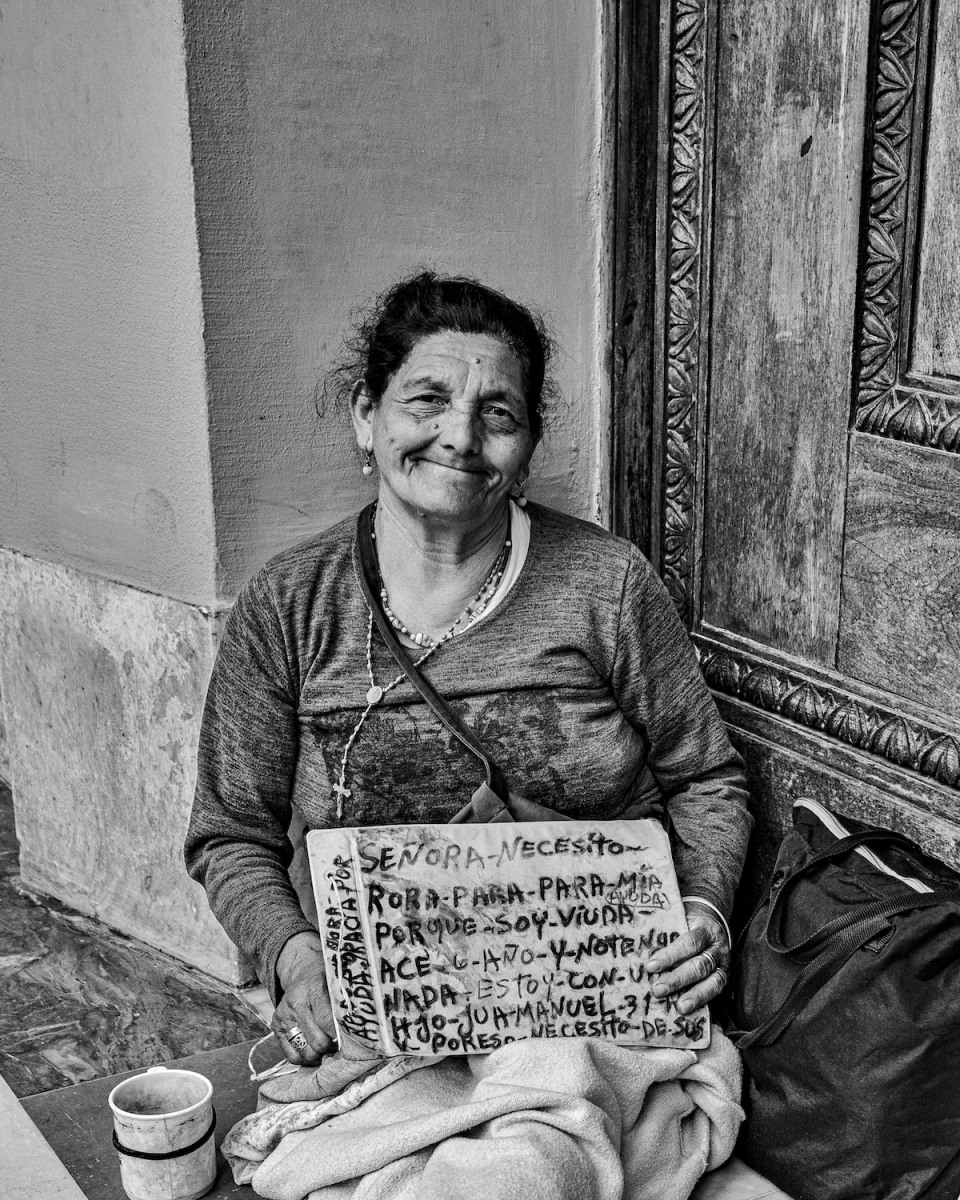 SEÑORA-NECESITO-
RORA-PARA-PARA-MIA
AYUDA
PORQUE-SOY-VIUDA-
ACE AÑO-Y-NOTENGO
NADA-ESTOY-CON-UN
HJO-JUA-MANUEL-31-A
Y PORESO-NECESITO-DE-SUS
AYUDA-GRACIA POR